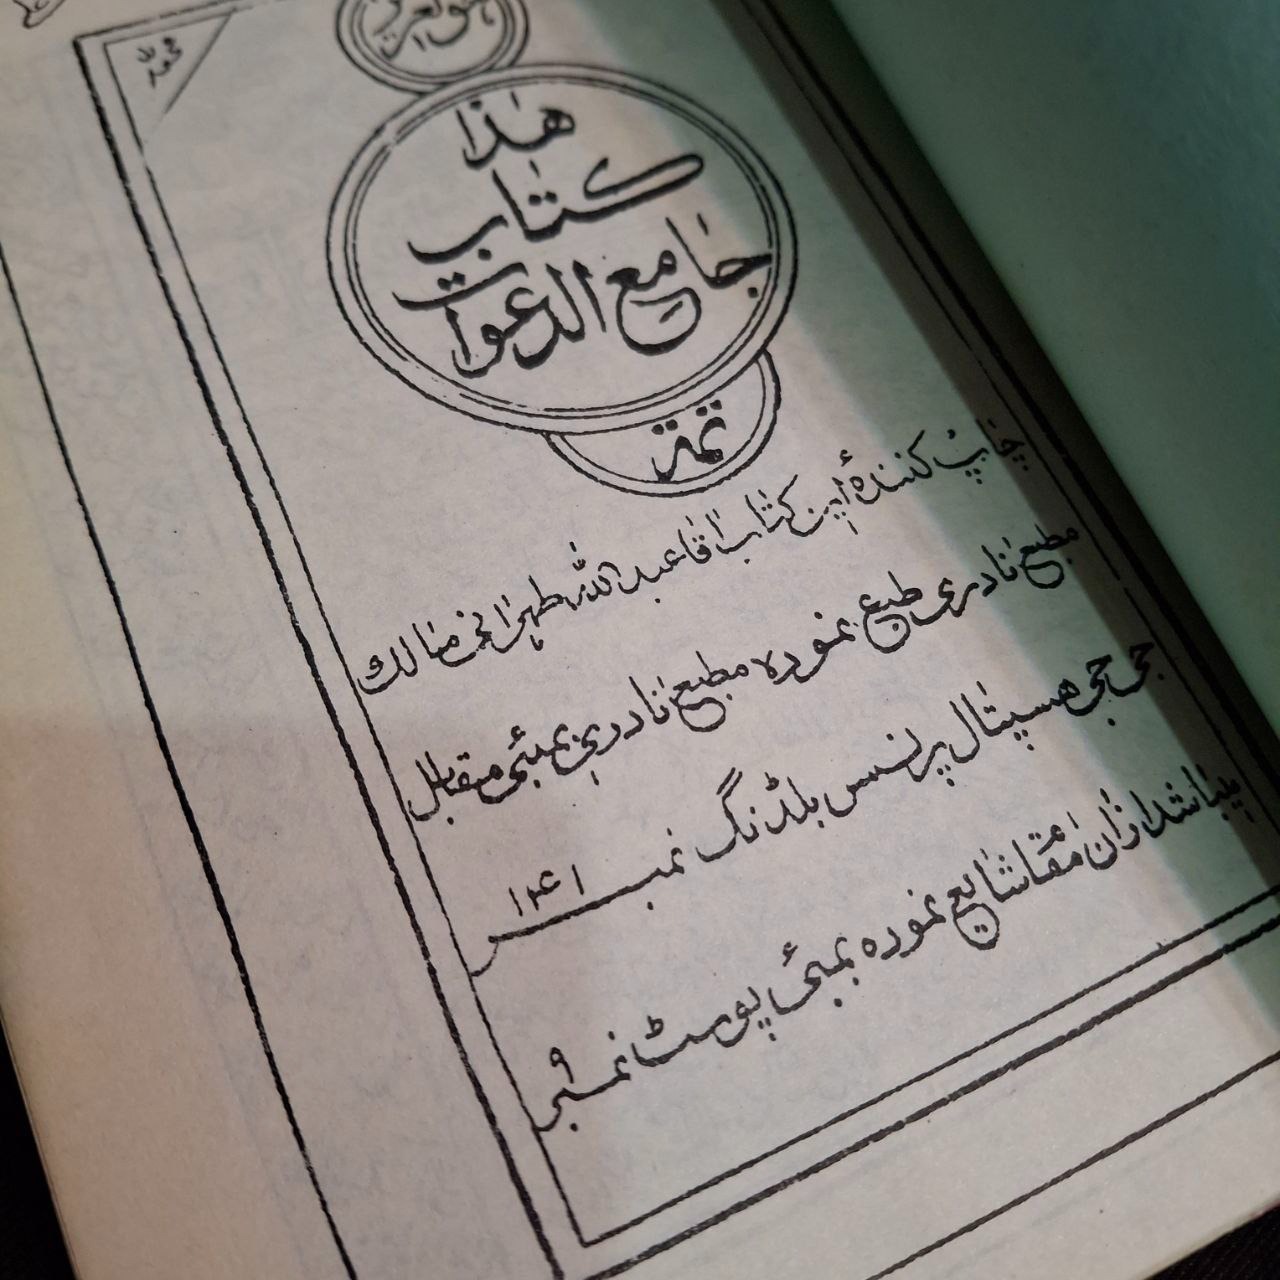 هو العزیز
هٰذا
کتاب
جامع الدعوات
تمت
چاپ کنندۀ این کتاب آقا عبدالله طهرانی مالک
مطبع نادری طبع نموده مطبع نادری بمبئی مقابل
جی جی هسپتال پرنسس بلڈنگ نمبر ۱۴۱
میباشد از آن مقا شایع نموده بمبئی پوسٹ نمبر ۹